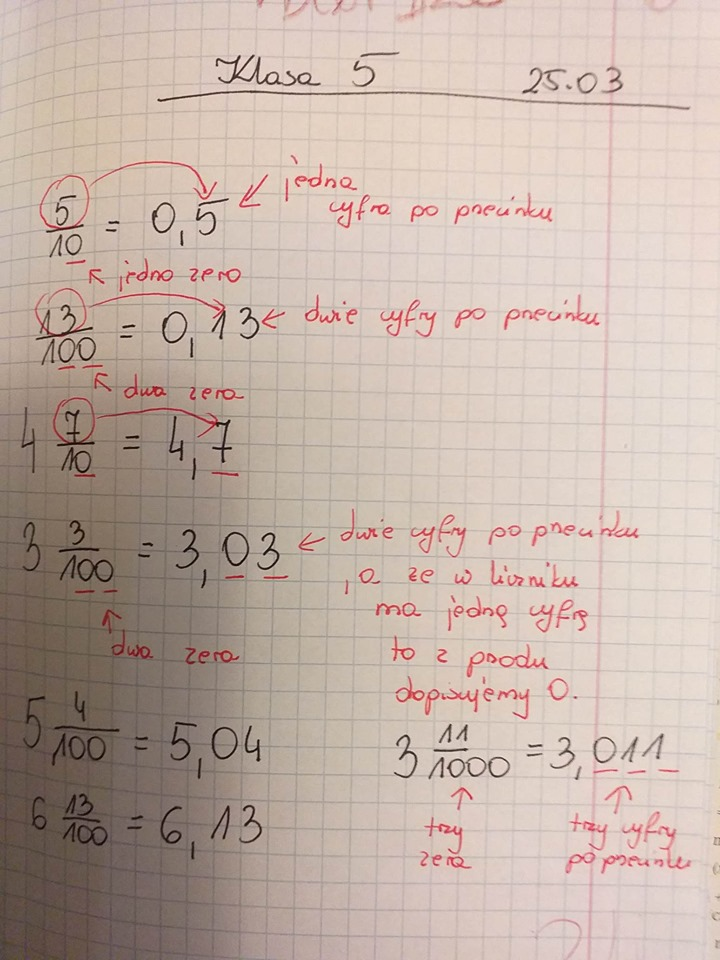 Klasa 5 25.03
jedna
5/10 = 0,5 cyfra po przecinku
jedno zero
13/100 = 0,13 dwie cyfry po przecinku
dwa zera
4 7/10 = 4,7
3 3/100 = 3,03 dwie cyfry po przecinku
, a że w liczniku
ma jedną cyfrę
dwa zera
to z przodu
dopisujemy 0.
5 4/100 = 5,04
3 11/1000 = 3,011
6 13/100 = 6,13
trzy
zera
trzy cyfry
po przecinku